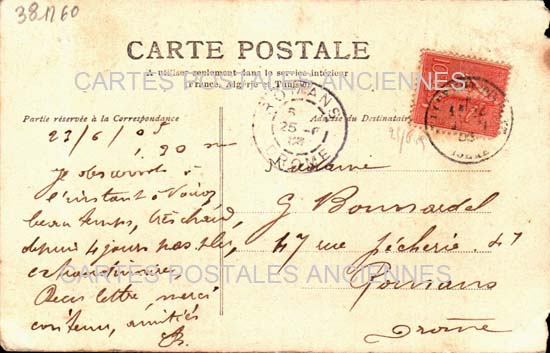 381760
CARTE POSTALE
A utiliser seulement dans le service intérieur
(France, Algérie et Tunisie)
CARTES POSTALES ANCIENNES
Partie réservée à la Correspondance
Adresse du Destinataire
ROMANS
25 -6
DROME
ISERE
10
23/6/05
1 30
Je
l'instant à
beau temps, très chaud,
depuis 4 jours pas plu,
Reçu lettre, merci
contenu, amitiés
Madame
G Boussardel
47 rue Pêcherie 47
Romans
Drôme
CARTES POSTALES ANCIENNES